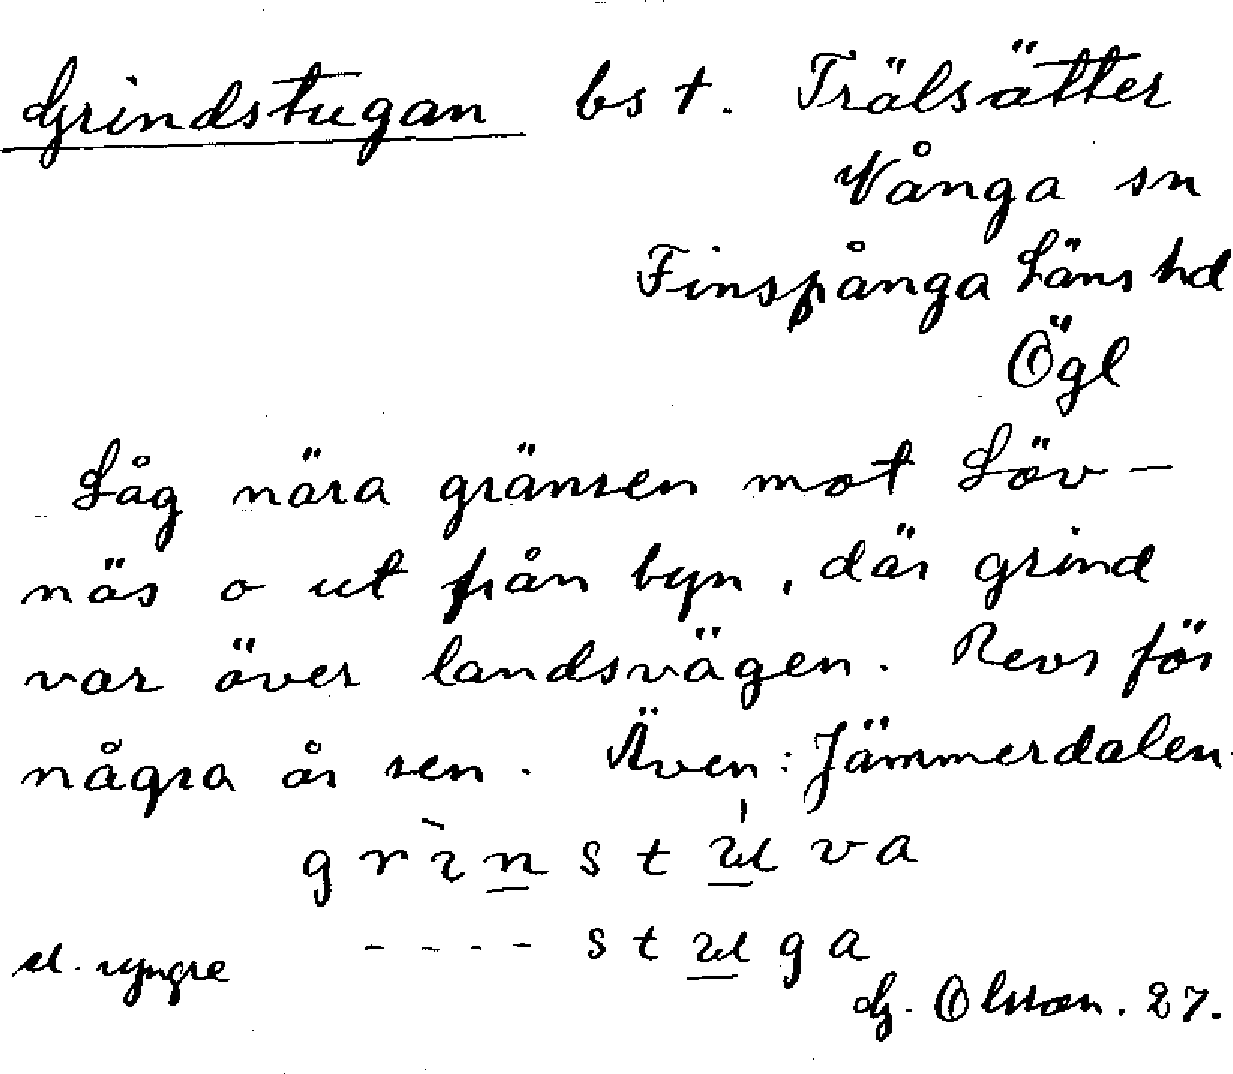 Grindstugan bst. Trälsätter
Vånga sn
Finspånga Läns hd
Ögl
Låg nära gränsen mot Löv-
näs o ut från byn, där grind
var över landsvägen. Revs för
några år sen. Även: Jämmerdalen
grìnstúva
----stuga
el. yngre
G. Olsson. 27.